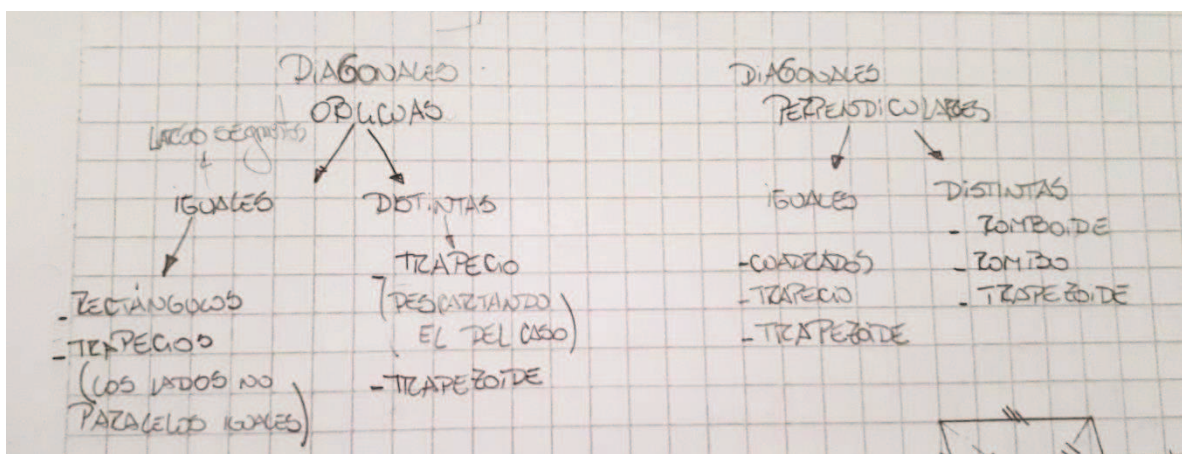 DIAGONALES
OBLICUAS
LARGO SEGMENTOS
IGUALES
DISTINTAS
- RECTÁNGULOS
- TRAPECIOS
(LOS LADOS NO
PARALELOS IGUALES)
- TRAPECIO
(DESCARTANDO
EL DEL CASO)
- TRAPEZOIDE
DIAGONALES
PERPENDICULARES
IGUALES
- CUADRADOS
- TRAPECIO
- TRAPEZOIDE
DISTINTAS
- ROMBOIDE
- ROMBO
- TRAPEZOIDE